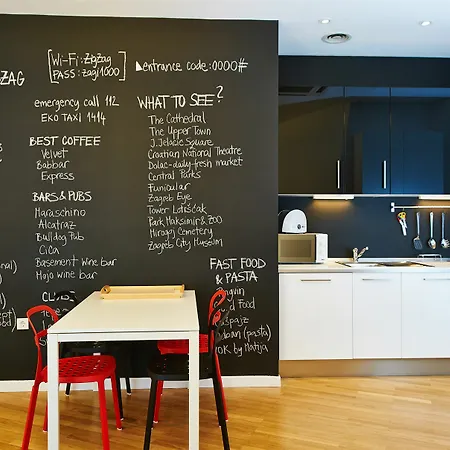 ZAG
Wi-Fi: ZigZag
PASS: zagi1000
entrance code: 0000#
emergency call 112
EKO TAXI 1414
BEST COFFEE
Velvet
Babbar
Express
BARS & PUBS
Haraschino
Alcatraz
Bulldog Pub
CiCa
Basement Wine bar
Mojo wine bar
WHAT TO SEE?
The Cathedral
The Upper Town
J. Jelačić Square
Croatian National Theatre
Dolac-daily fresh market
Central Parks
Funicular
Zagreb Eye
Tower Lotrščak
Park Maksimir & ZOO
Mirogoj Cemetery
Zagreb City Museum
FAST FOOD
& PASTA
Food
(pasta)
by Matija